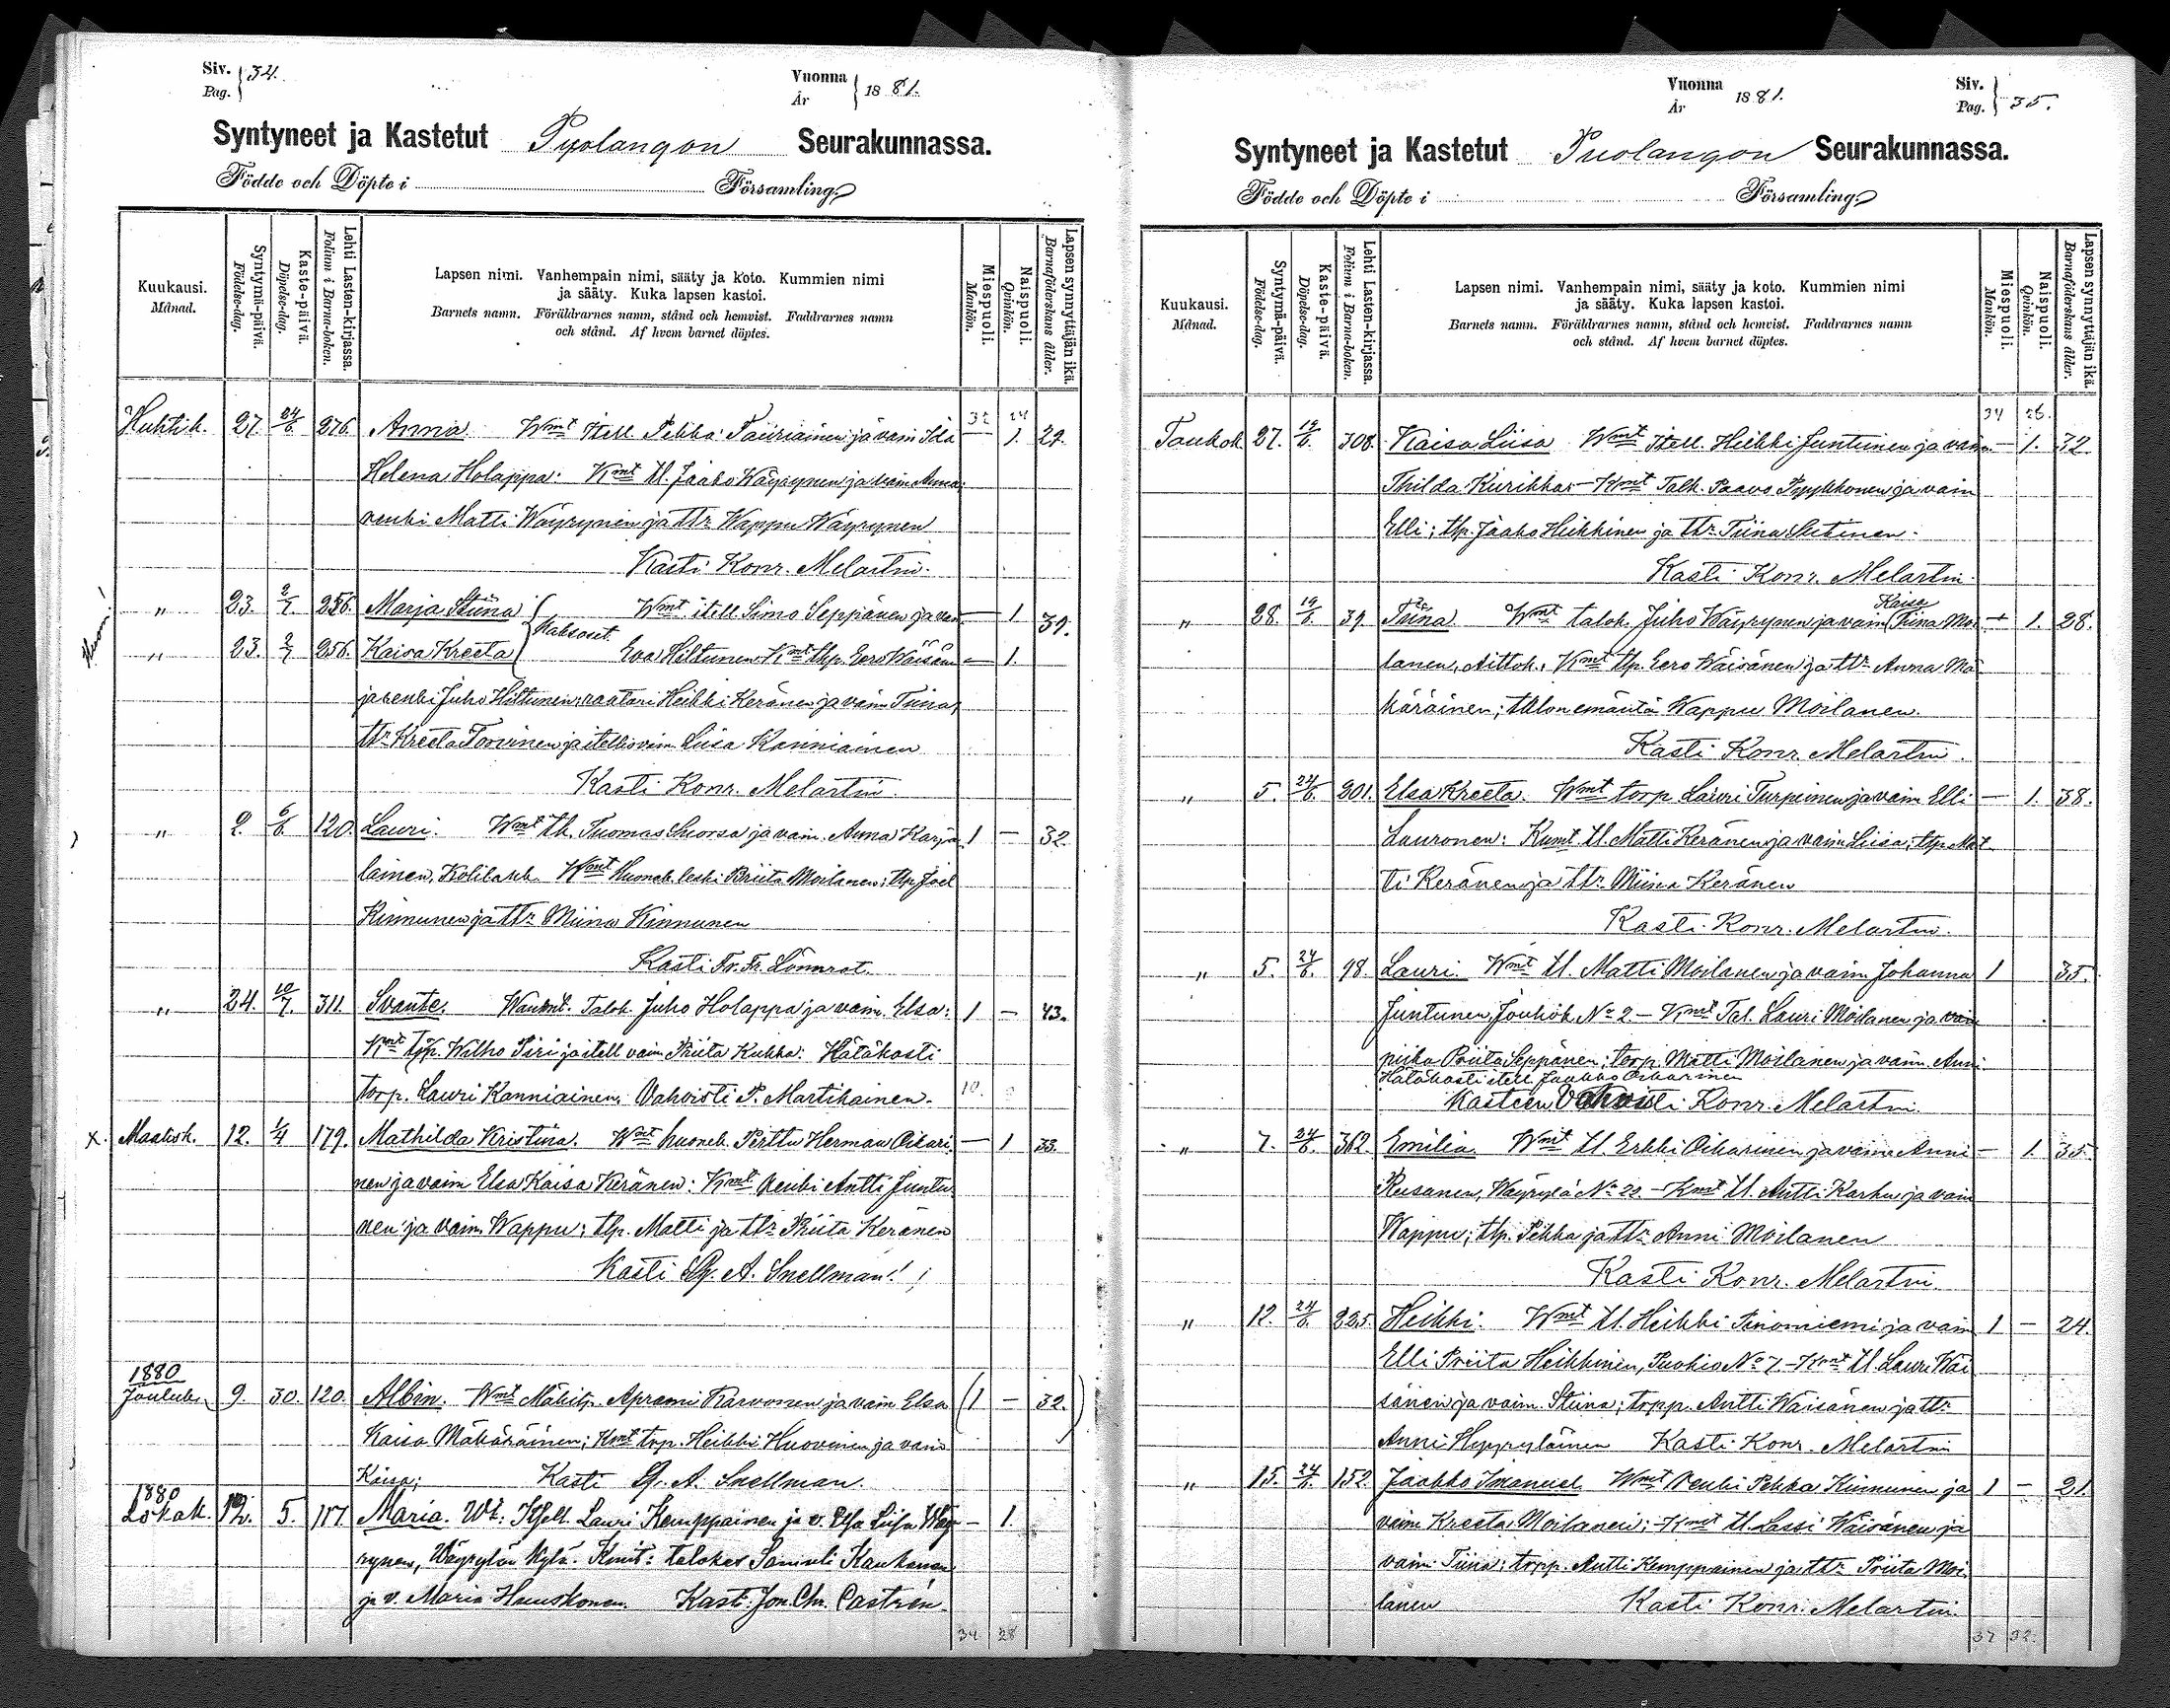 Siv. Pag. } 34.
Vuonna År } 1881.
Syntyneet ja Kastetut Puolangon Seurakunnassa.
Födde och Döpte i Församling.
Kuukausi. Månad.
Syntymä-päivä. Födelse-dag.
Kaste-päivä. Döpelse-dag.
Lehti Lasten-kirjassa. Folium i Barna-boken.
Lapsen nimi. Vanhempain nimi, sääty ja koto. Kummien nimi
ja sääty. Kuka lapsen kastoi.
Barnets namn. Föräldrarnes namn, stånd och hemvist. Faddrarnes namn
och stånd. Af hvem barnet döptes.
Miespuoli. Mankön.
Naispuoli. Qvinkön.
Lapsen synnyttäjän ikä. Barnaföderskans ålder.
32 24
Huhtik. 27. 24/6. 276. Anna. Wmt Itell. Pekka Tauriainen ja vaim Ida — 1. 29.
Helena Holappa: Kmt tl. Jaako Wäyrynen ja vaim Anna;
renki Matti Wäyrynen ja ttr Wappu Wäyrynen
Kasti Konr. Melartin.
„ 23. 2/7. 256. Marja Stiina Wmt itell. Simo Seppänen ja vai — 1 39.
Kaksoset.
„ 23. 2/7 256. Kaisa Kreeta Eva Hiltunen Kmt tlp. Eero Wäisän — 1.
ja renki Juho Hiltunen, raatari Heikki Keränen ja vaim Tiina,
ttr Kreeta Torvinen ja itell vaim Liisa Kanniainen
Kasti Konr. Melartin.
„ 2. 6/6 120. Lauri. Wmt tl. Tuomas Suorsa ja vaim. Anna Karja 1 — 32.
lainen, Kmt Huoneh. leski Briita Moilanen; tlp Joel
Kinnunen ja ttr Miina Kinnunen
Kasti Fr. Fr. Lönnrot.
„ 24. 10/7. 311. Svante. Wanhmt. Taloh. Juho Holappa ja vaim. Elsa: 1 — 43.
Kmt tlp. Wilho Piri ja itell vaim Priita Kukka: Hätäkasti
torp. Lauri Kanniainen. Vahvisti P. Martikainen.
10.
x. Maalisk. 12. 1/4 179. Mathilda Kristiina. Wmt huoneh. Perttu Herman Oikari — 1 33.
nen ja vaim Elsa Kaisa Keränen: Kmt Renki Antti Juntu
nen ja vaim. Wappu; tlp. Matti ja ttr Priita Keränen
Kasti A. Snellman!
1880
Jouluk. 9. 30. 120. Albin. Wmt Mäkitp. Aprami Karvonen ja vaim Elsa (1 — 32.)
Kaisa Mäkäräinen; Kmt trp. Heikki Huovinen ja vaim
Kaisa; Kasti A. Snellman.
1880
Lokak. 12. 5. 117. Maria. Wt: Itsell. Lauri Kemppainen ja v. Elsa Liisa Wäy — 1.
rynen, Wäyrylän kylä. Kmit: talokas Samuli Kaukanen
ja v. Maria Hauskonen. Kast. Jon. Chr. Castrén.
34 28
Vuonna År 1881.
Siv. Pag. } 35.
Syntyneet ja Kastetut Puolangon Seurakunnassa.
Födde och Döpte i Församling.
Kuukausi. Månad.
Syntymä-päivä. Födelse-dag.
Kaste-päivä. Döpelse-dag.
Lehti Lasten-kirjassa. Folium i Barna-boken.
Lapsen nimi. Vanhempain nimi, sääty ja koto. Kummien nimi
ja sääty. Kuka lapsen kastoi.
Barnets namn. Föräldrarnes namn, stånd och hemvist. Faddrarnes namn
och stånd. Af hvem barnet döptes.
Miespuoli. Mankön.
Naispuoli. Qvinkön.
Lapsen synnyttäjän ikä. Barnaföderskans ålder.
34 26.
Toukok. 27. 19/6. 308. Kaisa Liisa Wmt Itell. Heikki Juntunen ja vaim — 1. 32.
Thilda Kurikka — Kmt Talk. Paavo Pyykkonen ja vaim
Elli; tlp. Jaako Heikkinen ja ttr. Tiina
Kasti Konr. Melartin.
Kaisa
„ 28. 19/6. 39. Tiina Wmt taloh. Juho Wäyrynen ja vaim Tiina Moi — 1. 28.
lanen, Aittok. Kmt tlp. Eero Wäisänen ja ttr Anna Mä
käräinen; tallon emäntä Wappu Moilanen.
Kasti Konr. Melartin.
„ 5. 24/6. 201. Elsa Kreeta. Wmt torp. Lauri Turpeinen ja vaim Elli — 1. 38.
Lauronen: Kumt tl. Matti Keränen ja vaim Liisa; tlp. Mat
ti Keränen ja ttr. Miina Keränen
Kasti Konr. Melartin.
„ 5. 24/6. 98. Lauri. Wmt tl. Matti Moilanen ja vaim Johanna 1 35.
Juntunen, Joukok. No 2. — Kmt Tal. Lauri Moilanen ja vaim
piika Priita Seppänen; torp. Matti Moilanen ja vaim. Anni
Hätäkasti itell. Jaakko Oikarinen
Kasteen Vahvisti Konr. Melartin.
„ 7. 24/6. 362. Emilia. Wmt tl. Erkki Oikarinen ja vaim Anni — 1. 35.
Rusanen, Wäyrylä No 22. — Kmt tl. Antti Karhu ja vaim
Wappu; tlp. Pekka ja ttr. Anni Moilanen
Kasti Konr. Melartin.
„ 12. 24/6. 225. Heikki. Wmt tl. Heikki Pinoniemi ja vaim 1 — 24.
Elli Priita Heikkinen, Puokio No 7. — Kmt tl. Lauri Wäi
sänen ja vaim. Stiina; torpp. Antti Wäisänen ja ttr
Anni Hyyryläinen Kasti Konr. Melartin
„ 15. 24/6. 152. Jaakko Imanuel. Wmt Renki Pekka Kinnunen ja 1 — 21.
vaim Kreeta Moilanen; Kmt tl. Lassi Wäisänen ja
vaim. Tiina; torpp. Antti Kemppainen ja ttr Priita Moi
lanen Kasti Konr. Melartin.
37 32.